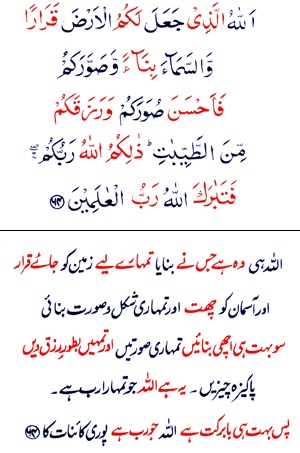 اَللّٰهُ الَّذِىْ جَعَلَ لَكُمُ الْاَرْضَ قَرَارًا
وَّالسَّمَآءَ بِنَآءً وَّصَوَّرَكُمْ
فَاَحْسَنَ صُوَرَكُمْ وَرَزَقَكُمْ
مِّنَ الطَّيِّبٰتِ ؕ ذٰلِكُمُ اللّٰهُ رَبُّكُمْ ۖۚ
فَتَبٰرَكَ اللّٰهُ رَبُّ الْعٰلَمِيْنَ ﴿۶۴﴾
اللہ ہی وہ ہے جس نے بنایا تمہارے لیے زمین کو جائے قرار
اور آسمان کو چھت اور تمہاری شکل و صورت بنائی
سو بہت ہی اچھی بنائیں تمہاری صورتیں اور تمہیں بطور رزق دیں
پاکیزہ چیزیں۔ یہ ہے اللہ جو تمہارا رب ہے۔
پس بہت ہی بابرکت ہے اللہ جو رب ہے پوری کائنات کا ﴿۶۴﴾